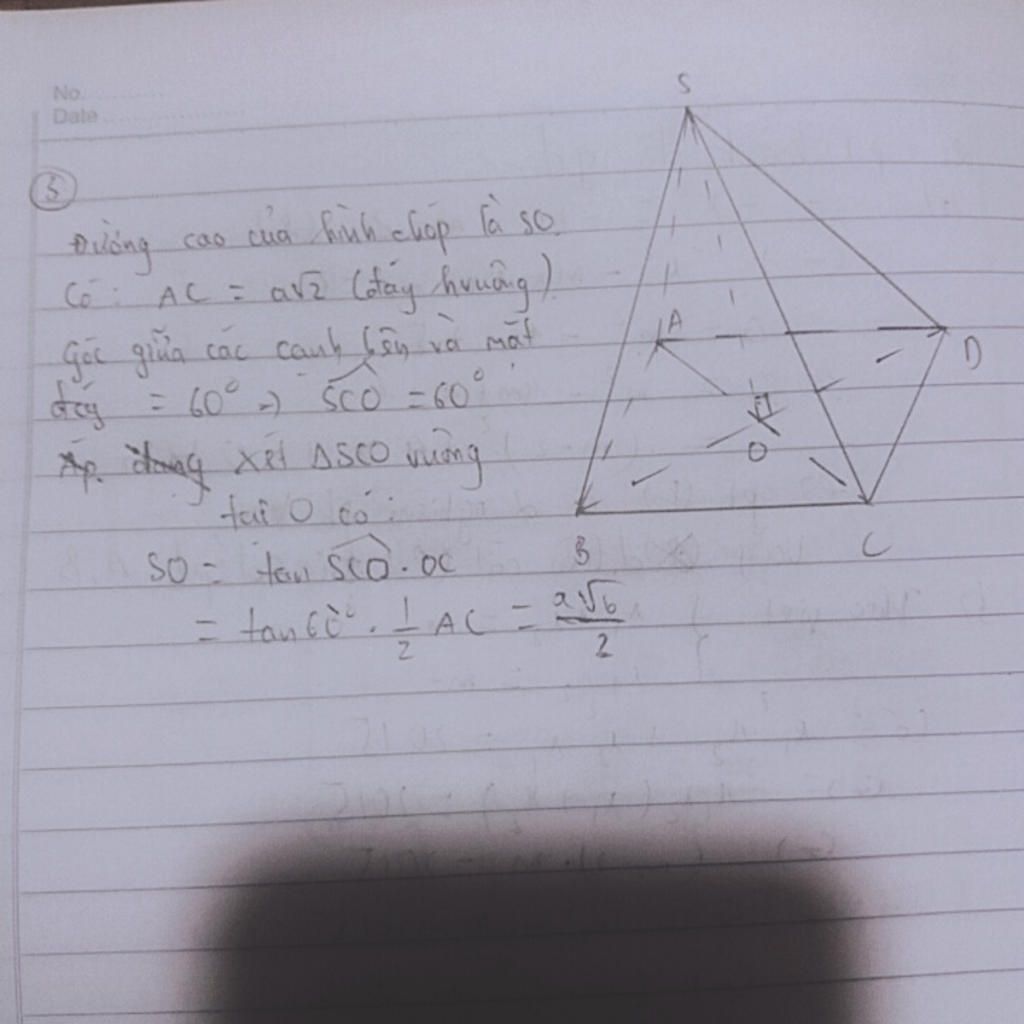 No.
Date
5
Đường cao của hình chóp là SO
Có: AC = a√2 (đáy hvuông)
Góc giữa các cạnh bên và mặt
đáy = 60° => SCO = 60°
Áp dụng xét ΔSCO vuông
tại O có:
SO = tan SCO . OC
= tan 60° . 1/2 AC = a√6/2
S
A
D
O
B
C